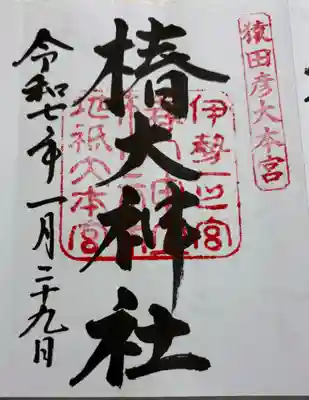 猿田彦大本宮
伊勢一之宮
地祇大本宮
椿大神社
令和七年一月二十九日